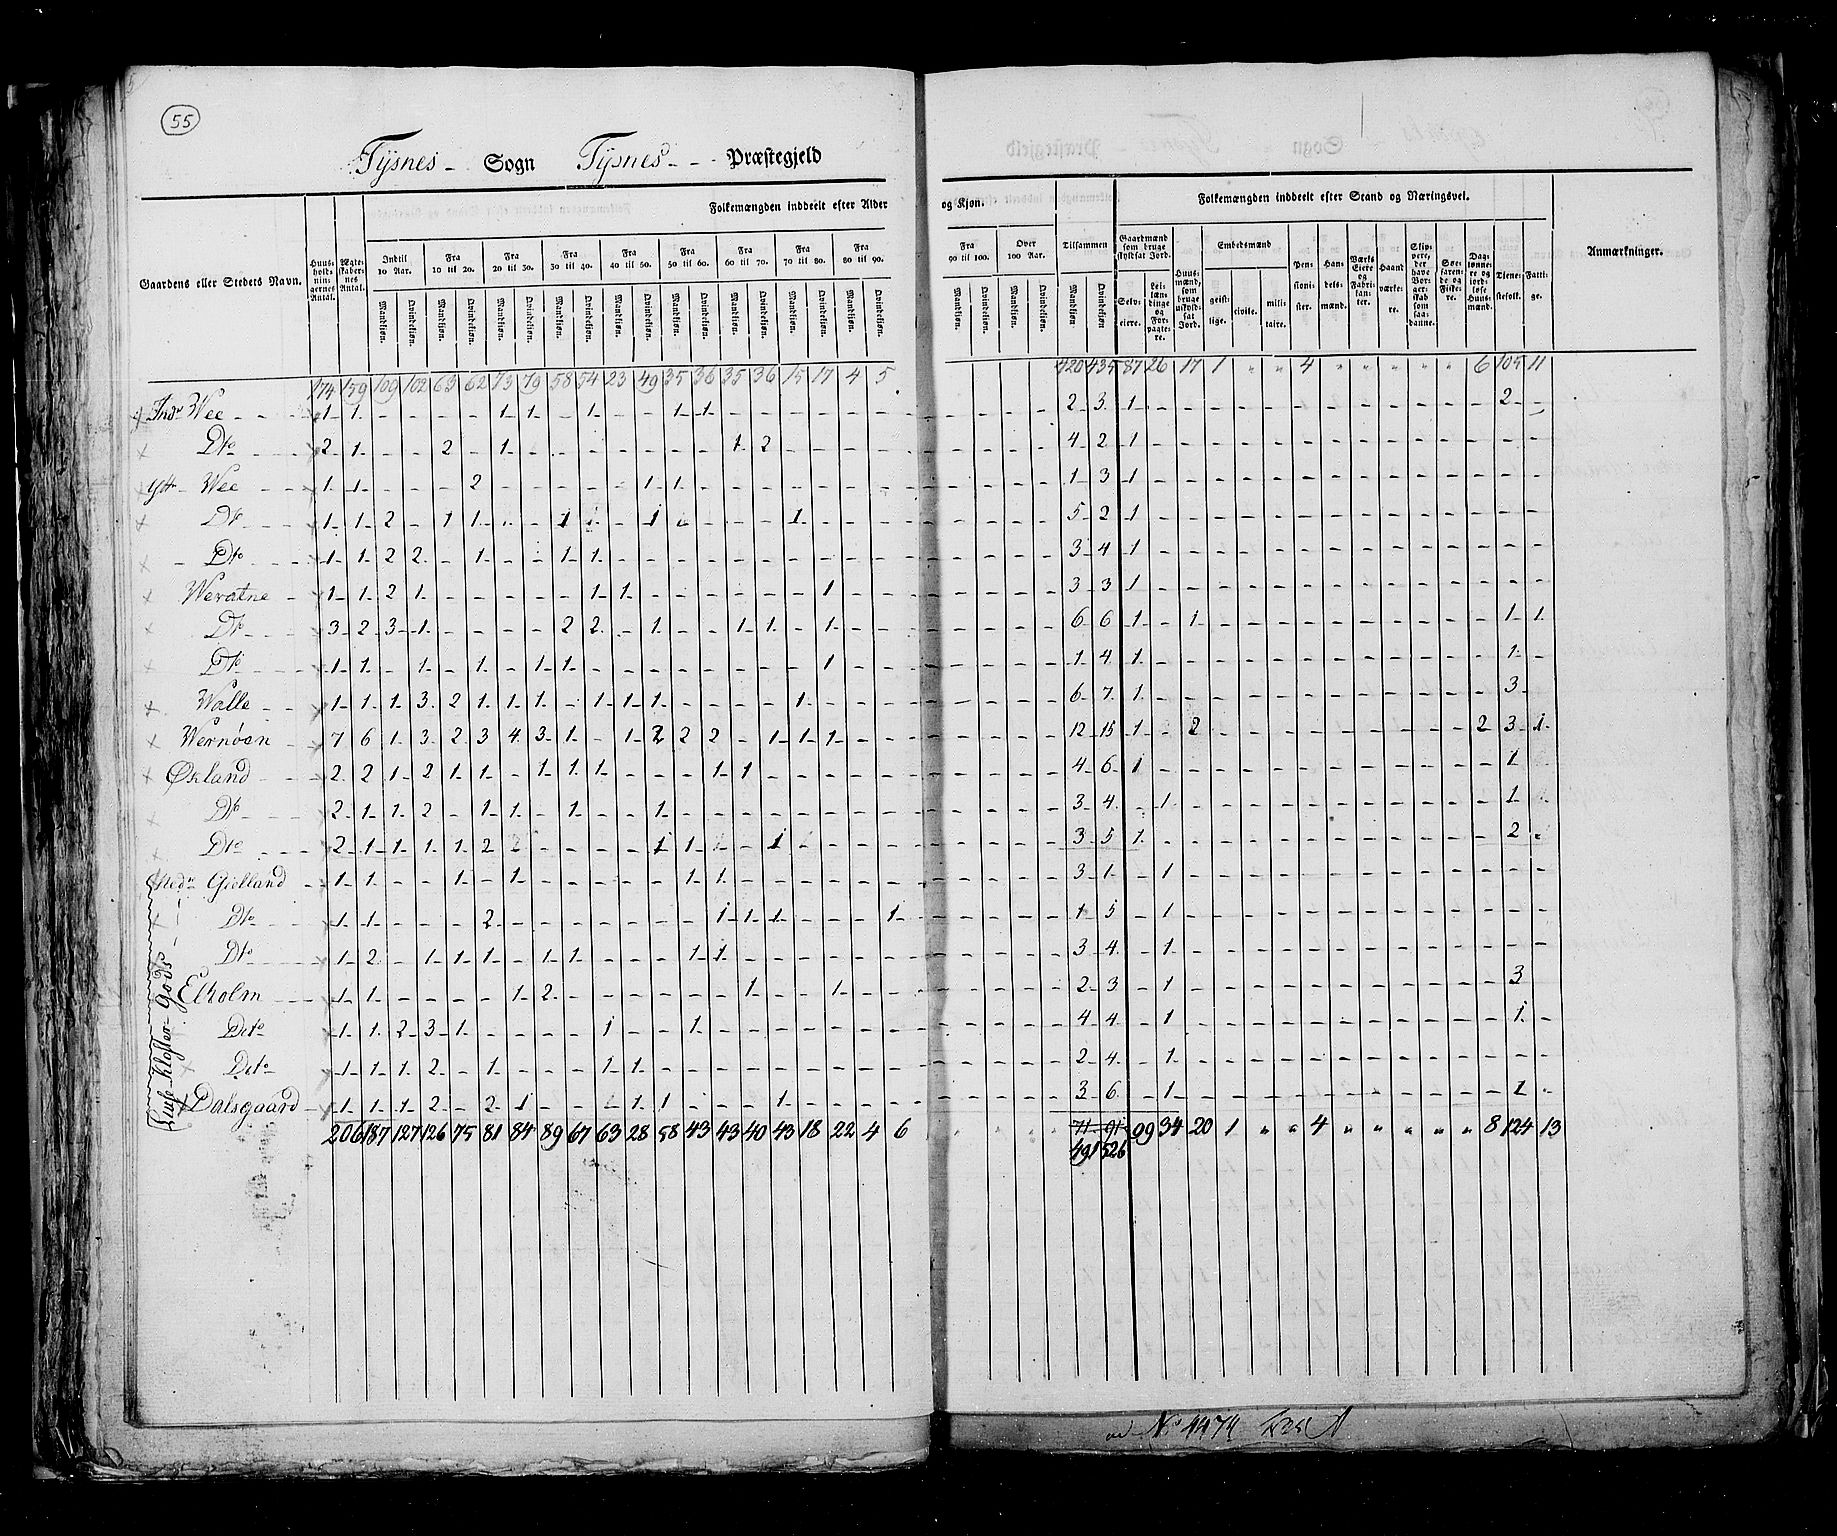 55
Tysnes - Sogn Tysnes - - Præstegjeld
Gaardens eller Steders Navn.
Huusholdningernes Antal.
Ægteskabernes Antal.
Folkemængden inddeelt efter Alder og Kjøn.
Indtil 10 Aar.
Fra 10 til 20.
Fra 20 til 30.
Fra 30 til 40.
Fra 40 til 50.
Fra 50 til 60.
Fra 60 til 70.
Fra 70 til 80.
Fra 80 til 90.
Fra 90 til 100.
Over 100 Aar.
Tilsammen
Mandkjøn. Qvindekjøn.
Folkemængden inddeelt efter Stand og Næringsvei.
Gaardmænd som bruge skyldsat Jord.
Selveiere.
Leilændinge og Forpagtere.
Huusmænd, som bruge uskyldsat Jord.
Embedsmænd
geistlige. civile. militaire.
Pensionister.
Handelsmænd.
Værks Eiere og Fabrikanter.
Haandværkere.
Skippere, der have Borgerskab som saadanne.
Søefarende og Fiskere.
Daglønnere og jordløse Huusmænd.
Tjenestefolk.
Fattige.
Anmærkninger.
174 159 109 102 63 62 73 79 58 54 23 49 35 36 35 36 15 17 4 5 420 435 87 26 17 1 " " 4 " " " " " 6 105 11
Indr Wee 1 1 1 1 1 1 1 2 3 1 2
Dto 2 1 2 1 1 2 4 2 1
Ytr Wee 1 1 2 1 1 1 3 1
Dto 1 1 2 1 1 1 1 1 5 2 1
Dto 1 1 2 2 1 1 1 3 4 1
Weratne 1 1 2 1 1 1 1 3 3 1
Dto 3 2 3 1 2 2 1 1 1 1 6 6 1 1 1 1
Dto 1 1 1 1 1 1 1 1 4 1 1
Walle 1 1 1 3 2 1 1 1 1 1 1 1 6 7 1 3
Wernøen 7 6 1 3 2 3 4 3 1 1 2 2 2 1 1 1 12 15 1 2 2 3 1
Økland 2 2 1 2 1 1 1 1 1 1 1 4 6 1 1
Dto 2 1 1 2 1 1 1 1 3 4 1 1
Dto 2 1 1 1 1 2 1 1 1 3 5 1 2
Nedr Giølland 1 1 1 1 1 1 3 1 1
Dto 1 1 2 1 1 1 1 1 5 1
Dto 1 2 1 1 1 1 1 1 1 3 4 1
Elholm 1 1 1 2 1 1 2 3 1 3
Deto 1 1 2 3 1 1 1 4 4 1 1
Deto 1 1 1 2 1 1 1 2 4 1
Dalsgaard 1 1 1 2 2 1 1 1 1 3 6 1 1
Lyse Kloster Gods
71 91
206 187 127 126 75 81 84 89 67 63 28 58 43 43 40 43 18 22 4 6 491 526 99 34 20 1 " " 4 " " " " " 8 124 13